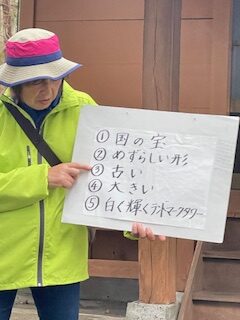 ① 国の宝
② めずらしい形
③ 古い
④ 大きい
⑤ 白く輝くラントマークタワー